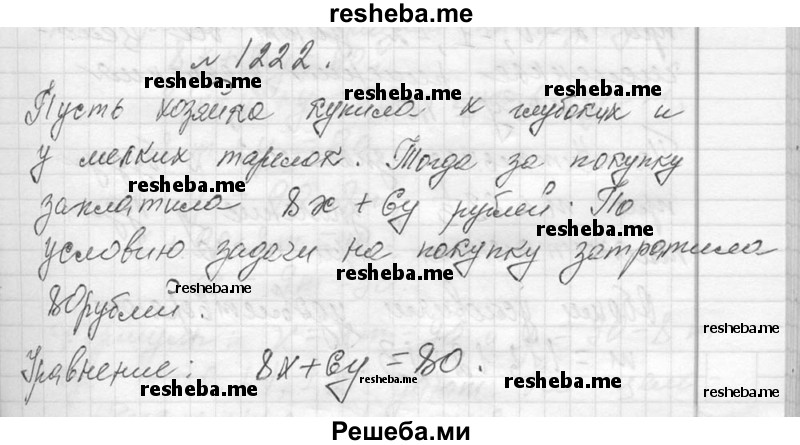 resheba.me
№ 1222.
resheba.me resheba.me resheba.me
Пусть хозяйка купила x глубоких и
y мелких тарелок. Тогда за покупку
resheba.me resheba.me
заплатила 8x + 6y рублей. По
resheba.me
условию задачи на покупку затратила
resheba.me resheba.me
80 рублей.
resheba.me
Уравнение: 8x + 6y = 80.
resheba.me resheba.me resheba.me
Решеба.ми